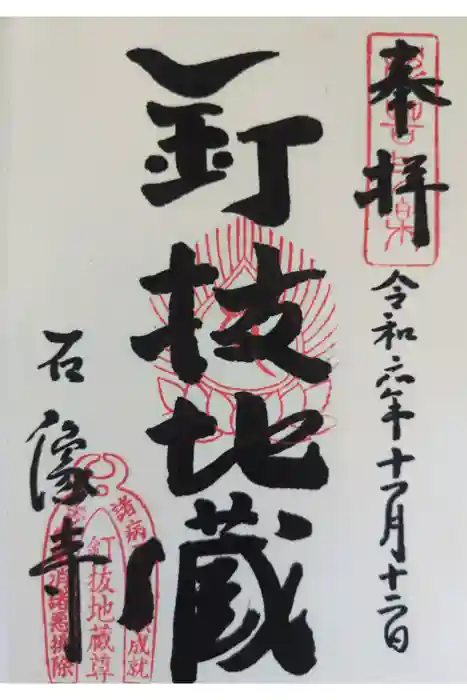 奉拝
令和六年十一月十二日
釘抜地蔵
石像寺
諸病
成就
釘抜地蔵尊
消諸悪揆除